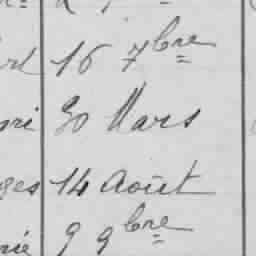 16 7bre
30 Mars
ges 14 Août
9 9bre